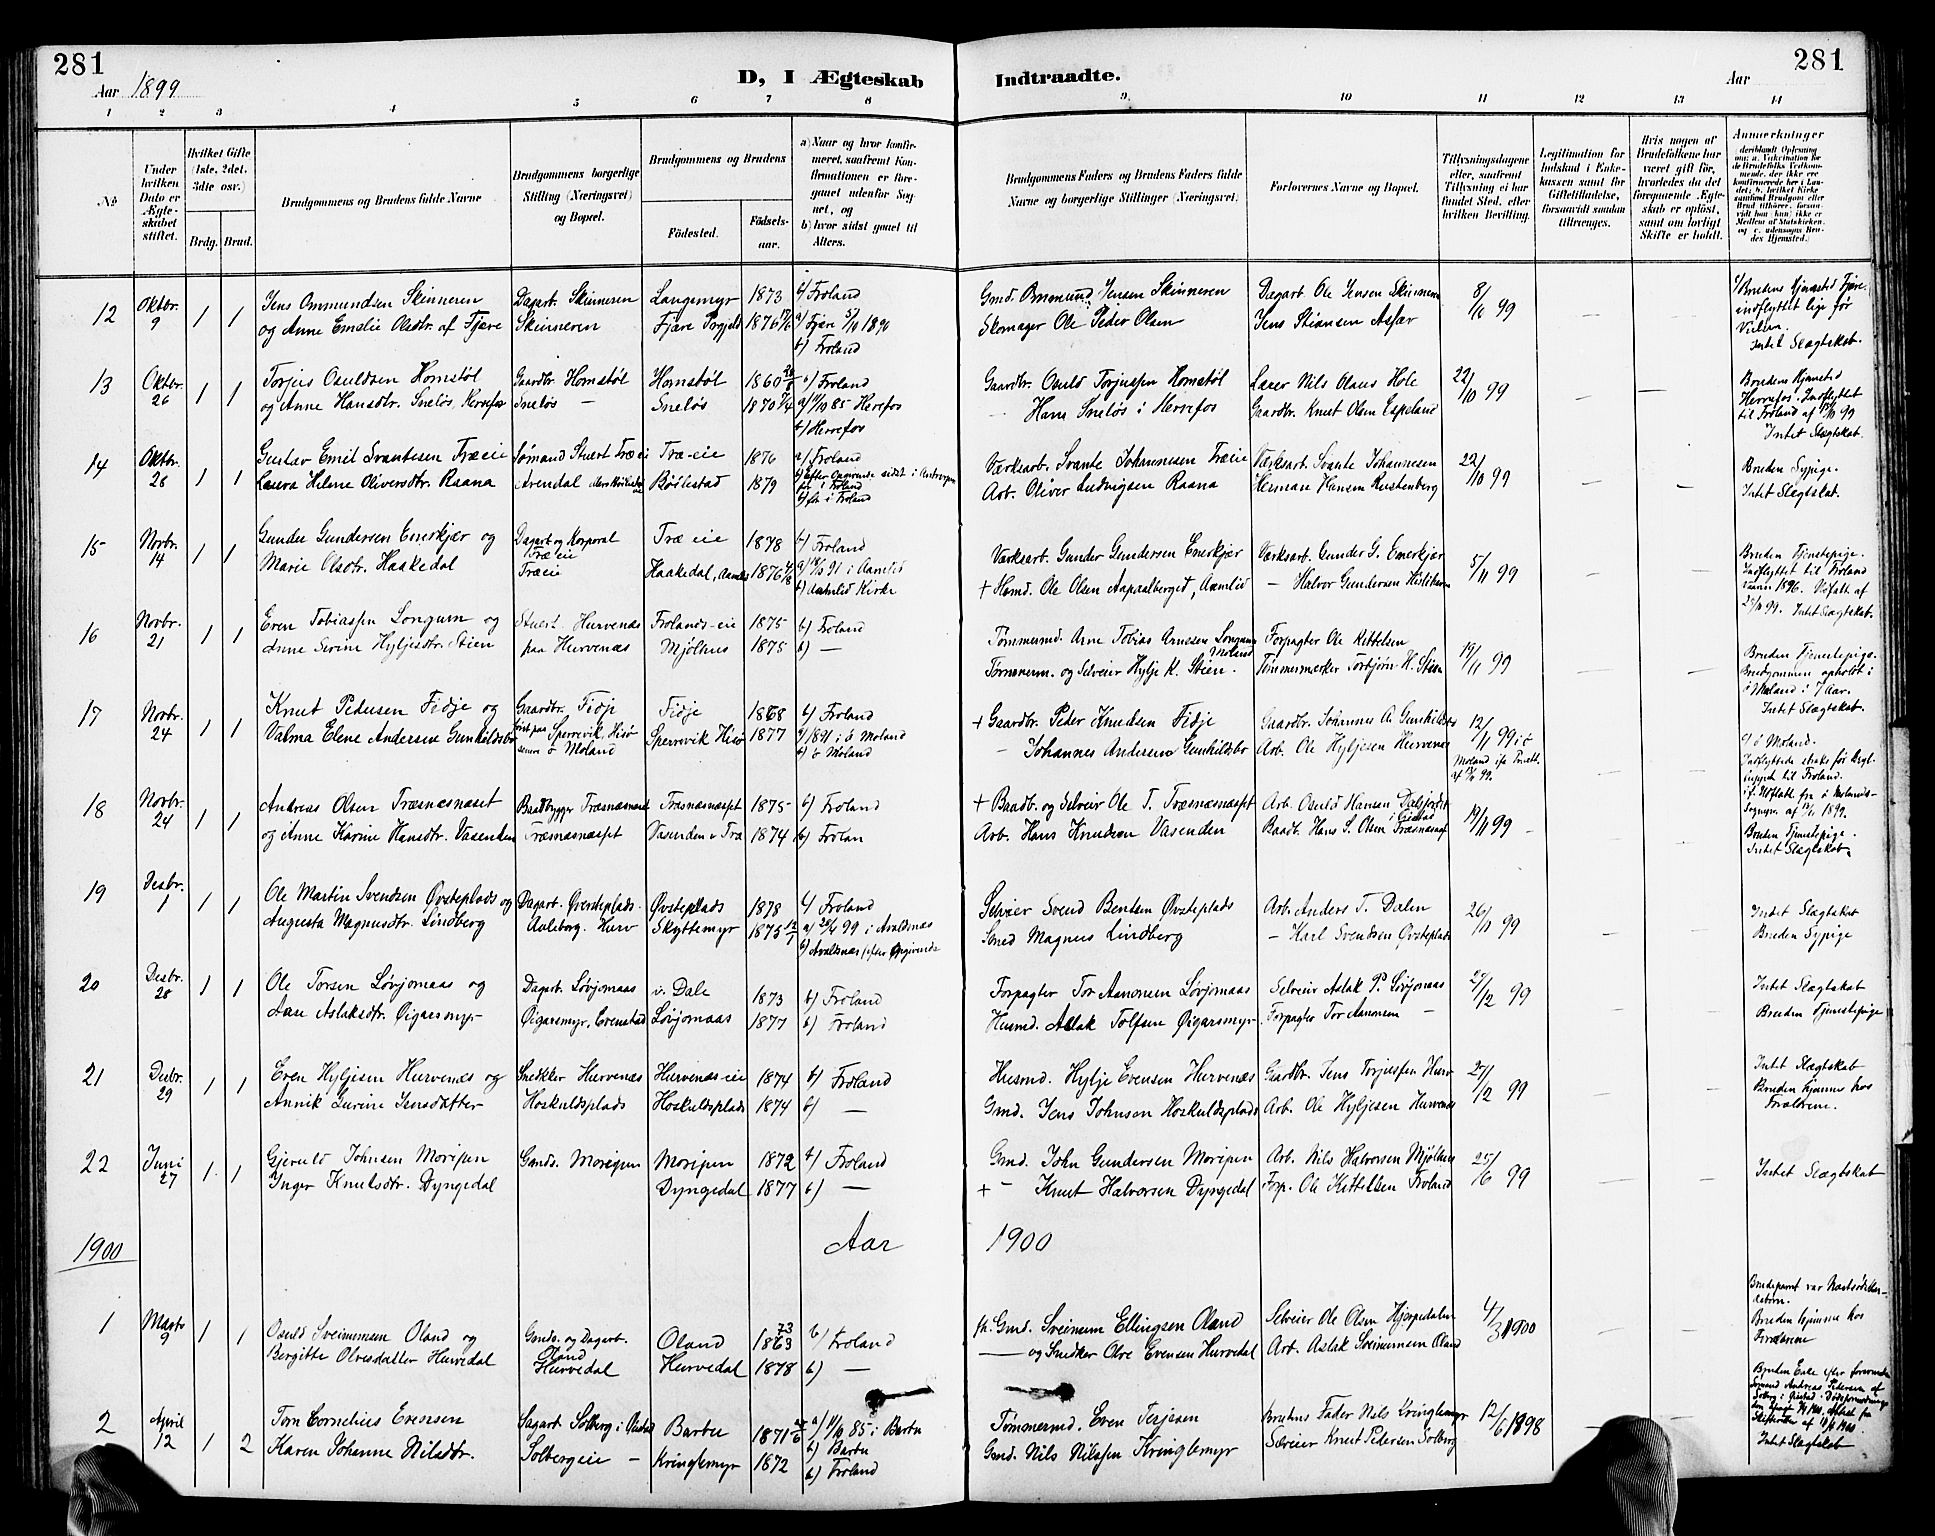 281
Aar 1899
D, I Ægteskab
Indtraadte.
Aar
281
1 2 3 4 5 6 7 8 9 10 11 12 13 14
No
Under hvilken Dato er Ægteskabet stiftet.
Hvilket Gifte (1ste, 2det, 3die osv.)
Brdg. Brud.
Brudgommens og Brudens fulde Navne
Brudgommens borgerlige Stilling (Næringsvei) og Bopæl.
Brudgommens og Brudens
Fødested.
Fødselsaar.
a) Naar og hvor konfirmeret, saafremt Konfirmationen er foregaaet udenfor Sognet, og
b) hvor sidst gaaet til Alters.
Brudgommens Faders og Brudens Faders fulde Navne og borgerlige Stillinger (Næringsvei)
Forlovernes Navne og Bopæl.
Tillysningsdagene eller, saafremt Tillysning ei har fundet Sted, efter hvilken Bevilling.
Legitimation for Indskud i Enkekassen samt for Giftetilladelse, forsaavidt saadan tiltrænges.
Hvis nogen af Brudefolkene har været gift før, hvorledes da det foregaaende Ægteskab er opløst, samt om lovligt Skifte er holdt.
Anmerkninger
12 Oktbr. 9 1 1
Jens Ommundsen Skinneren
og Anne Emelie Olsdtr. af Fjære
Dagarb. Skinneren
Skinneren
Langemyr 1873 b) Froland
Fjære Prgjeld 1876 a) Fjære 5/10 1890
b) Froland
Gmd. Ommund Jensen Skinneren
Skomager Ole Peder Olsen
Dagarb. Ole Jensen Skinneren
Jens Stiansen Asfær
8/10 99
Brudens Hjemsted Fjære
indflyttet lige før
Vielsen.
Intet Slægtskab.
13 Oktbr. 26 1 1
Torjus Osuldsen Homstøl
og Anne Hansdtr. Sneløs, Herrefos
Gaardbr. Homstøl
Sneløs —
Homstøl 1860 b) Froland
Sneløs 1870 a) 11/10 85 Herrefos
b) Herrefos
Gaardbr. Osuld Torjussen Homstøl
— Hans Sneløs i Herrefos
Lærer Nils Olaus Hole
Gaardbr. Knut Olsen Espeland
22/10 99
Brudens Hjemsted
Herrefos. Indflyttet
til Froland
Intet Slægtskab.
14 Oktbr. 28 1 1
Gustav Emil Svantesen Træeie
Laura Helene Oliversdtr. Raana
Sømand Stuert Træeie
Arendal
Træ-eie 1876 a) Froland
Bøilestad 1879
Værksarb. Svante Johannesen Træeie
Arb. Oliver Ludvigsen Raana
Værksarb. Svante Johannesen
Herman Hansen Rustenberg
22/10 99
Bruden Sypige.
Intet Slægtskab.
15 Novbr. 14 1 1
Gunder Gundersen Enerkjær og
Marie Olsdtr. Haakedal
Dagarb. og Korporal
Træeie
Træeie
Træ eie 1878 b) Froland
Haakedal, Aamlid 1876 91 i Aamlid
b) Aamlid Kirke
Værksarb. Gunder Gundersen Enerkjær
+ Hsmd. Ole Olsen Aapaalberget, Aamlid
Værksarb. Gunder G. Enerkjær
— Halvor Gundersen
5/11 99
Bruden Tjenestepige.
Indflyttet til Froland
1896.
Intet Slægtskab.
16 Novbr. 21 1 1
Even Tobiassen Longum og
Anne Serine Hyljesdtr. Stien
Stuert Hurvenæs
paa Hurvenæs
Frolands-eie 1875 b) Froland
Mjølhus 1875 b) —
Tømmermd. Arne Tobias Arnesen Longum Moland
Tømmerm. og Selveier Hylje K. Stien.
Forpagter Ole Kittelsen
Tømmermærker Torbjørn H. Stien
19/11 99
Bruden Tjenestepige.
Brudgommen opholdt i
ø Moland i 7 Aar.
Intet Slægtskab.
17 Novbr. 24 1 1
Knut Pedersen Fidje og
Valma Elene Andersen Gunhildsbo
Gaardbr. Fidje
Sperrevik, Hisø
senere ø Moland
Fidje 1868 b) Froland
Sperrevik Hisø 1877 a) 1891 i ø Moland
b) ø Moland
+ Gaardbr. Peder Knudsen Fidje
— Johannes Andersen Gunhildsbo
Gaardbr. Johannes A. Gunhildsbo
Arb. Ole Hyljesen Hurvenæs
12/11 99 i ø
Moland
ø Moland.
til Froland.
1899.
18 Novbr. 24 1 1
Andreas Olsen Træsnæsnæset
og Anne Karine Hansdtr. Vasenden
Baadbygger Træsnæsnæset
Træsnæsnæsset
Træsnæsnæsset 1875 b) Froland
Vasenden v. Træ 1874 b) Frolan
+ Baadb. og Selveier Ole T. Træsnæsnæsset
Arb. Hans Knudsen Vasenden
Arb. Osuld Hansen
Baadb. Hans S. Olsen Træsnæsnæs
19/11 99
Bruden Tjenestepige.
Intet Slægtskab.
19 Desbr. 1 1 1
Ole Martin Svendsen Øvsteplads og
Augusta Magnusdtr. Lindberg
Dagarb. Øvsteplads
Aaleborg. Hurv
Øvsteplads 1878 b) Froland
Skyttemyr 1875 a) 99 i Avaldsnæs
b) Avaldsnæs efter Opgivende
Selveier Svend Bentsen Øvsteplads
Smed Magnus Lindberg
Arb. Anders T. Dalen
— Karl Svendsen Øvsteplads
26/11 99
Intet Slægtskab
Bruden Sypige
20 Desbr. 28 1 1
Ole Torsen Løvjomaas og
Aase Aslaksdtr. Øigarsmyr
Dagarb. Løvjomaas
Øigarsmyr, Evenstad
v. Dale 1873 b) Froland
Løvjomaas 1877 b) Froland
Forpagter Tor Aanonsen Løvjomaas
Husmd. Aslak Tolfsen Øigarsmyr
Selveier Aslak P. Løvjomaas
Forpagter Tor Aanonsen —
27/12 99
Intet Slægtskab
Bruden Tjenestepige
21 Desbr. 29 1 1
Even Hyljesen Hurvenæs og
Annik Gurine Jensdatter
Snekker Hurvenæs
Hoskuldsplads
Hurvenæs-eie 1874 b) Froland
Hoskuldsplads 1874 b) —
Husmd. Hylje Evensen Hurvenæs
Gmd. Jens Johnsen Hoskuldsplads
Gaardbr. Jens Torjussen Hurv
Arb. Ole Hyljesen Hurvenæs
27/12 99
Intet Slægtskab
Bruden hjemme hos
Forældrene.
22 Juni 27 1 1
Gjeruld Johnsen Moripen
Inger Knutsdtr. Dyngedal
Gmds. Moripen
Moripen 1872 b) Froland
Dyngedal 1877 b) —
Gmd. John Gundersen Moripen
+ — Knut Halvorsen Dyngedal
Arb. Nils Halvorsen Mjølhus
Forp. Ole Kittelsen Froland
25/6 99
Intet Slægtskab
1900
Aar 1900
1 Marts 9 1 1
Osuld Sveinumsen Oland og
Bergitte Olvesdatter Hurvedal
Gmds. og Dagarb.
Oland
Hurvedal
Oland 1863 73 b) Froland
Hurvedal 1878 b) —
fh. Gmd. Sveinum Ellingsen Oland
— og Snedker Olve Evensen Hurvedal
Selveier Ole Olsen Hjorpedalen
Arb. Aslak Sveinumsen Oland
4/3 1900
Brudeparret var
Bruden hjemme hos
Forældrene
2 April 12 1 2
Tom Cornelius Evensen
Karen Johanne Nilsdtr.
Sagarb. Solberg i Øiestad
Solbergeie —
Barbu 1871 a) 11/10 85 i Barbu
b) Barbu
Kringlemyr 1872 b) Froland
Tømmermd. Even Terjesen
Gmd. Nils Nilssen Kringlemyr
Brudens Fader Nils Kringlemyr
Selveier Knut Pedersen Solberg
12/6 1898
Bruden Enke efter
Sømand Andreas Pedersen af
Solberg i Øiestad.
Intet Slægtskab